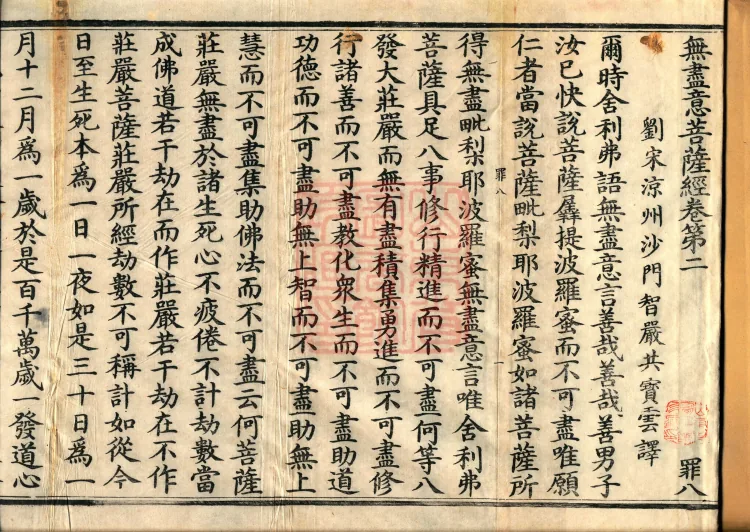 無盡意菩薩經卷第二
罪八
劉宋涼州沙門智嚴共寶雲譯
爾時舍利弗語無盡意言善哉善哉善男子
汝已快說菩薩羼提波羅蜜而不可盡唯願
仁者當說菩薩毗梨耶波羅蜜如諸菩薩所
罪八
一
得無盡毗梨耶波羅蜜無盡意言唯舍利弗
菩薩具足八事修行精進而不可盡何等八
發大莊嚴而無有盡積集勇進而不可盡修
行諸善而不可盡教化眾生而不可盡助道
功德而不可盡助無上智而不可盡助無上
慧而不可盡集助佛法而不可盡云何菩薩
莊嚴無盡於諸生死心不疲倦不計劫數當
成佛道若干劫在而作莊嚴若干劫在不作
莊嚴菩薩莊嚴所經劫數不可稱計如從今
日至生死本為一日一夜如是三十日為一
月十二月為一歲於是百千萬歲一發道心